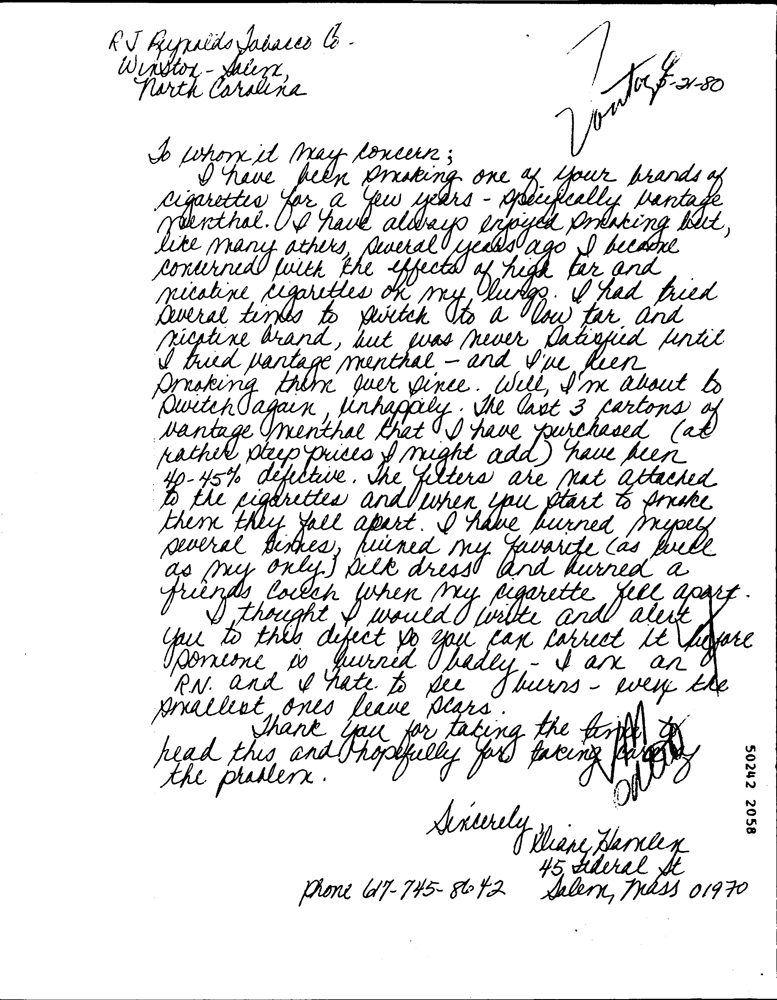 R J Reynolds Tobacco Co.
Winston-Salem,
North Carolina
Vantage
5-21-80
To whom it may concern;
I have been smoking one of your brands of
cigarettes for a few years - specifically vantage
menthol. I have always enjoyed smoking but,
like many others, several years ago I became
concerned with the effects of high tar and
nicotine cigarettes on my lungs. I had tried
several times to switch to a low tar and
nicotine brand, but was never satisfied until
I tried vantage menthol - and I've been
smoking them ever since. Well, I'm about to
switch again, unhappily. The last 3 cartons of
vantage menthol that I have purchased (at
rather steep prices I might add) have been
40-45% defective. The filters are not attached
to the cigarettes and when you start to smoke
them they fall apart. I have burned myself
several times, ruined my favorite (as well
as my only) silk dress and burned a
friends couch when my cigarette fell apart.
I thought I would write and alert
you to this defect so you can correct it before
someone is burned badly - I am an
R.N. and I hate to see burns - even the
smallest ones leave scars.
Thank you for taking the time to
read this and hopefully for taking care of
the problem.
Sincerely,
Diane Hamlen
45 Federal St
phone 617-745-8642 Salem, Mass 01970
50242 2058